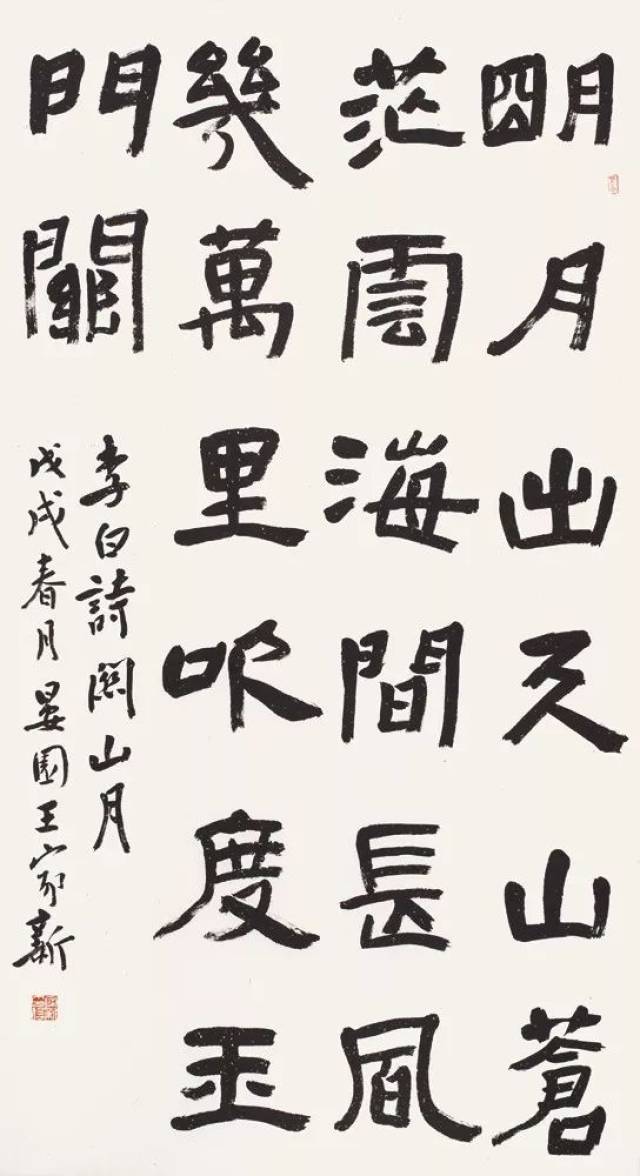 明月出天山蒼
茫雲海間長風
幾萬里吹度玉
門關
李白詩關山月
戊戌春月晏園王家新